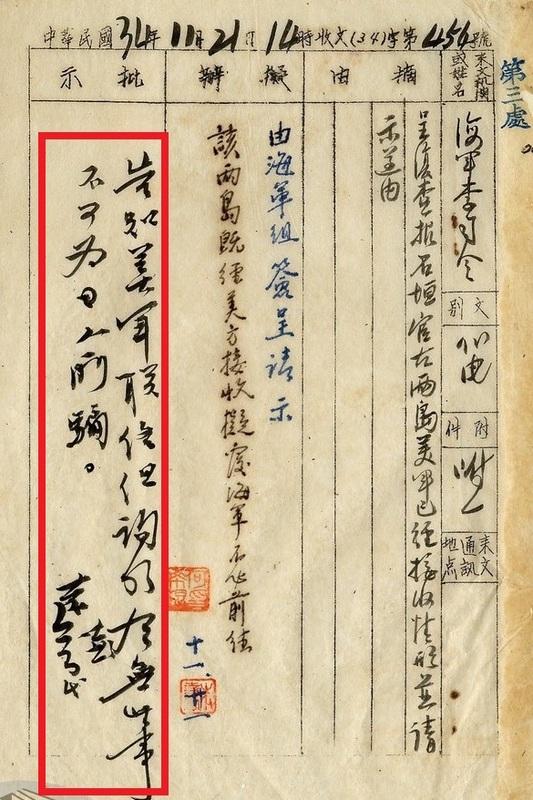 中華民國34年11月21日14時收文(34)字第456號
第三處
來文機關或姓名
海軍李司令
文別
代电
附件
來文通訊地点
摘由
呈復查報石垣宮古两島美軍已經接收情形並請
示遵由
擬辦
由海軍組簽呈請示
該两島既經美方接收擬復海軍不必前往
十一、廿一
批示
告知美軍联络但詢明有無此事
不可为日人所騙。